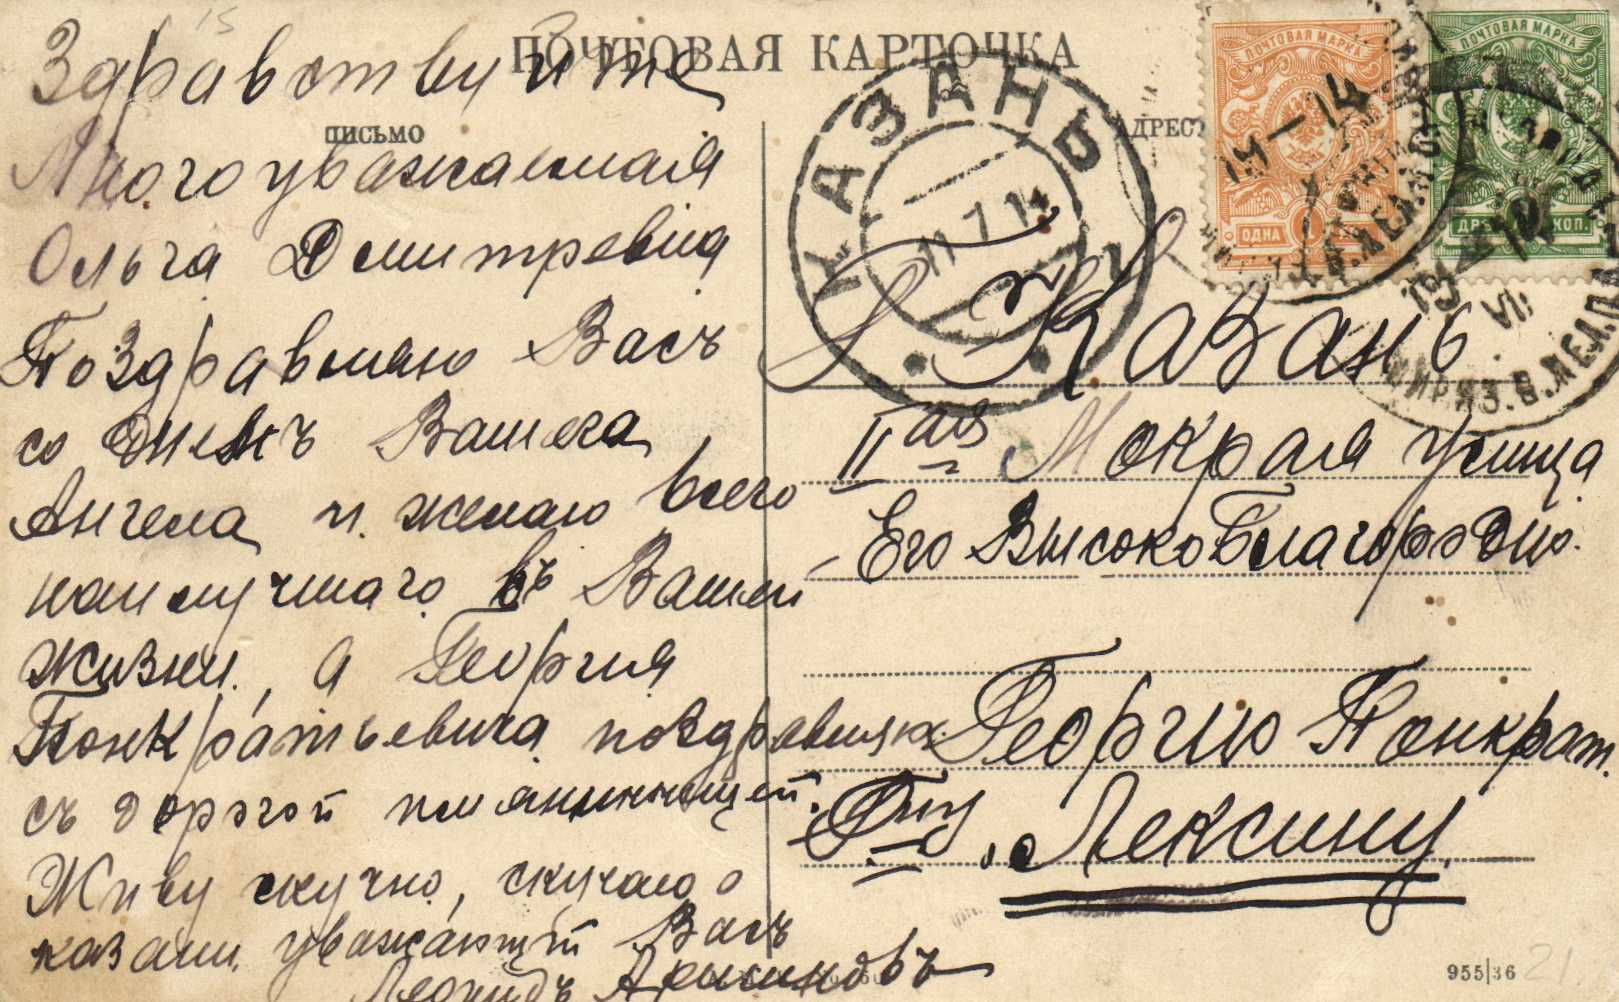 Здравствуите
Много уважаемая
Ольга Дмитревна
Поздравляю Васъ
со Днемъ Вашега
Ангела и желаю всего
наилучшаго въ Вашей
жизни, а Георгия
Понкратьевича поздравляю
съ дорогой имянинницей.
Живу скучно, скучаю о
казани уважающий Васъ
Леонидъ
ПОЧТОВАЯ КАРТОЧКА
ПИСЬМО
АДРЕС
КАЗАНЬ
11 7 14
ПОЧТОВАЯ МАРКА
ОДНА 1
ПОЧТОВАЯ МАРКА
ДВЕ КОП.
Г Казань
II ая Мокрая улица
Его ВысокоБлагородию.
Георгию Понкрат.
Гну. Лексину.
955|36
21
15